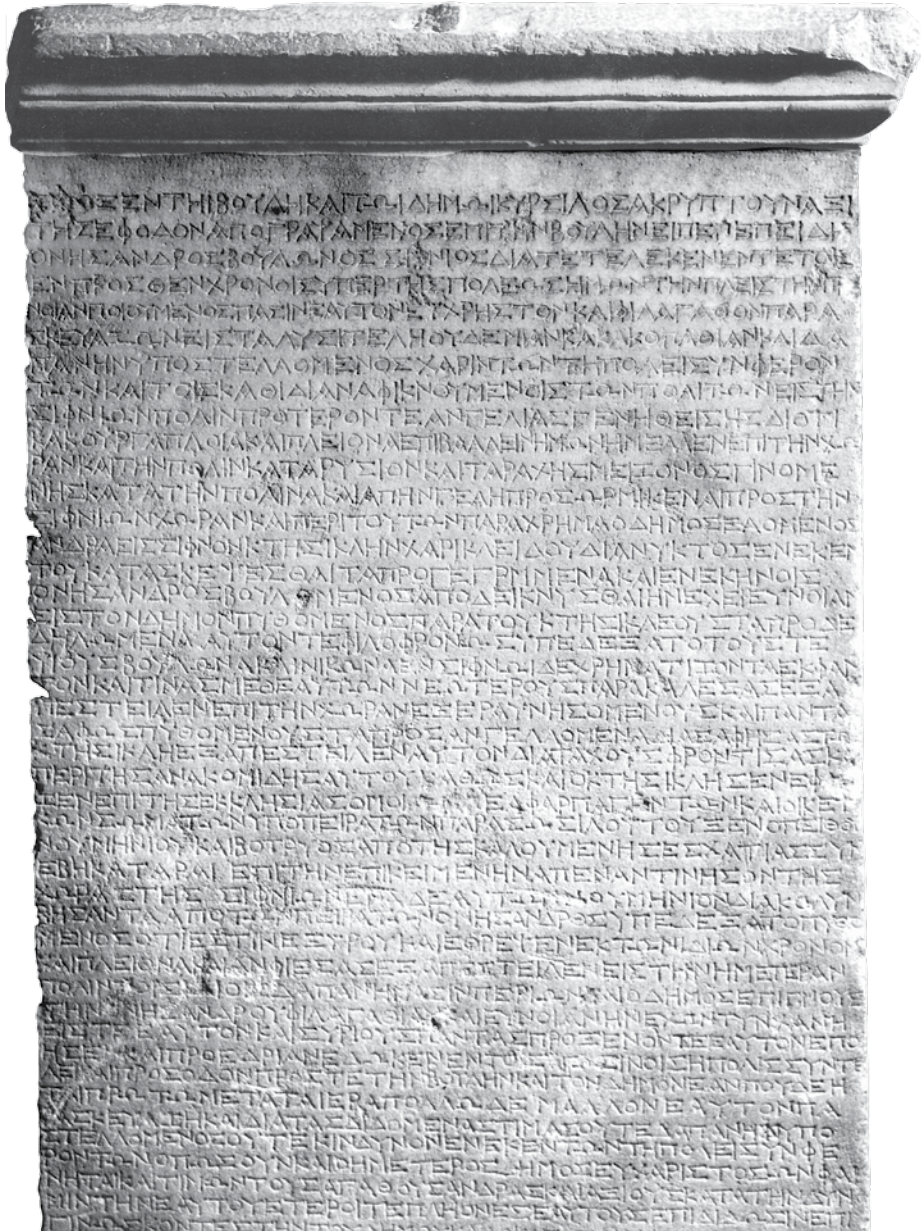 ΕΔΟΞΕΝΤΗΙΒΟΥΛΗΚΑΙΤΩΙΔΗΜΩΙΚΥΡΣΙΛΟΣΑΚΡΥΠΤΟΥΝΑΞΙ
ΤΗΣΕΦΟΔΟΝΑΠΟΓΡΑΨΑΜΕΝΟΣΕΠΙΤΗΝΒΟΥΛΗΝΕΙΠΕΝΕΠΕΙΔΗ
ΟΝΗΣΑΝΔΡΟΣΒΟΥΛΩΝΟΣΣΙΦΝΙΟΣΔΙΑΤΕΤΕΛΕΚΕΝΕΝΤΕΤΟΙΣ
ΕΝΠΡΟΣΘΕΝΧΡΟΝΟΙΣΥΠΕΡΤΗΣΠΟΛΕΩΣΗΜΩΝΤΗΝΠΛΕΙΣΤΗΝΠΡΟ
ΝΟΙΑΝΠΟΙΟΥΜΕΝΟΣΠΑΣΙΝΕΑΥΤΟΝΕΥΧΡΗΣΤΟΝΚΑΙΦΙΛΑΓΑΘΟΝΠΑΡΑ
ΣΚΕΥΑΖΩΝΕΙΣΤΑΛΥΣΙΤΕΛΗΟΥΔΕΜΙΑΝΚΑΚΑΚΟΠΑΘΙΑΝΚΑΙΔΑ
ΠΑΝΗΝΥΠΟΣΤΕΛΛΟΜΕΝΟΣΧΑΡΙΝΤΩΝΤΗΠΟΛΕΙΣΥΝΦΕΡΟΝ
ΤΩΝΚΑΙΤΟΙΣΚΑΘΙΔΙΑΝΑΦΙΚΝΟΥΜΕΝΟΙΣΤΩΝΠΟΛΙΤΩΝΕΙΣΤΗΝ
ΣΙΦΝΙΩΝΠΟΛΙΝΠΡΟΤΕΡΟΝΤΕΑΝΓΕΛΙΑΣΓΕΝΗΘΕΙΣΗΣΔΙΟΤΙ
ΚΑΚΟΥΡΓΑΠΛΟΙΑΚΑΙΠΛΕΙΟΝΑΕΠΙΒΑΛΛΕΙΝΗΜΩΝΗΜΕΛΛΕΝΕΠΙΤΗΝΧΩ
ΡΑΝΚΑΙΤΗΝΠΟΛΙΝΚΑΤΑΡΥΣΙΟΝΚΑΙΤΑΡΑΧΗΣΜΕΙΖΟΝΟΣΓΙΝΟΜΕ
ΝΗΣΚΑΤΑΤΗΝΠΟΛΙΝΑΚΑΙΑΠΗΝΓΕΛΗΠΡΟΣΩΡΜΙΚΕΝΑΙΠΡΟΣΤΗΝ
ΣΙΦΝΙΩΝΧΩΡΑΝΚΑΙΠΕΡΙΤΟΥΤΩΝΠΑΡΑΧΡΗΜΑΟΔΗΜΟΣΕΛΟΜΕΝΟΣ
ΑΝΔΡΑΕΙΣΣΙΦΝΟΝΚΤΗΣΙΚΛΗΝΧΑΡΙΚΛΕΙΔΟΥΔΙΑΝΥΚΤΟΣΕΝΕΚΕΝ
ΤΟΥΚΑΤΑΣΚΕΨΕΣΘΑΙΤΑΠΡΟΓΕΓΡΜΜΕΝΑΚΑΙΕΝΕΚΗΝΟΙΣ
ΟΝΗΣΑΝΔΡΟΣΒΟΥΛΟΜΕΝΟΣΑΠΟΔΕΙΚΝΥΣΘΑΙΗΝΕΧΕΙΕΥΝΟΙΑΝ
ΕΙΣΤΟΝΔΗΜΟΝΠΥΘΟΜΕΝΟΣΠΑΡΑΤΟΥΚΤΗΣΙΚΛΕΟΥΣΤΑΠΡΟΔΕ
ΔΗΛΩΜΕΝΑΑΥΤΟΝΤΕΦΙΛΟΦΡΟΝΩΣΥΠΕΔΕΞΑΤΟΤΟΥΣΤΕ
ΥΙΟΥΣΒΟΥΛΩΝΑΚΑΙ
ΤΟΝΚΑΙΤΙΝΑΣΜΕΘΕΑΥΤΩΝΝΕΩΤΕΡΟΥΣΠΑΡΑΚΑΛΕΣΑΣΕΞΑ
ΠΕΣΤΕΙΛΕΝΕΠΙΤΗΝΧΩΡΑΝΕΞΕΡΑΥΝΗΣΟΜΕΝΟΥΣΚΑΙΠΑΝΤΑ
ΣΑΦΩΣΠΥΘΟΜΕΝΟΥΣΤΑΠΡΟΣΑΝΓΕΛΛΟΜΕΝΑ
ΚΤΗΣΙΚΛΗΕΞΑΠΕΣΤΗΛΕΝΑΥΤΟΝΔΙΑΤΑΧΟΥΣΦΡΟΝΤΙΣΑΣ
ΠΕΡΙΤΗΣΑΝΑΚΟΜΙΔΗΣΑΥΤΟΥΚΑΘΩΣΚΑΙΟΚΤΗΣΙΚΛΗΣΕΝΕΦΑ
ΣΕΝΕΠΙΤΗΣΕΚΚΛΗΣΙΑΣΟΜΟΙΩΣΔΕΑΦΑΡΠΑΣΕΝΤΩΝΚΑΙΟΙΚΕΤΙ
ΚΩΝΣΩΜΑΤΩΝΥΠΟΠΕΙΡΑΤΩΝΠΑΡΑΣΩΣΙΛΟΥΤΟΥΞΕΝΟΠΕΙΘΟΥ
ΝΟΥΜΗΝΙΟΥΚΑΙΒΟΤΡΥΟΣΑΠΟΤΗΣΚΑΛΟΥΜΕΝΗΣΕΣΧΑΤΙΑΣΣΥΝ
ΕΒΗΚΑΤΑΡΑΙΕΠΙΤΗΝΕΠΙΚΕΙΜΕΝΗΝΑΠΕΝΑΝΤΙΝΗΣΟΝΤΗΣ
ΧΩΡΑΣΤΗΣΣΙΦΝΙΩΝ
ΒΗΣΑΝΤΑΑΠΟΤΩΝΠΕΙΡΑΤΩΝΟΝΗΣΑΝΔΡΟΣΥΠΕΔΕΞΑΤΟΠΥΘΟ
ΜΕΝΟΣΟΤΙΕΣΤΙΝΕΞΥΡΟΥΚΑΙΕΘΡΕΨΕΝΕΚΤΩΝΙΔΙΩΝΧΡΟΝΟΝ
ΚΑΙΠΛΕΙΟΝΑΚΑΙΑΝΦΙΕΣΑΣΕΞΑΠΕΣΤΕΙΛΕΝΕΙΣΤΗΝΗΜΕΤΕΡΑΝ
ΠΟΛΙΝ
ΚΑΙΠΡΟΕΔΡΙΑΝΕΔΩΚΕΝ
ΚΑΙΠΡΟΣΟΔΟΝΠΡΟΣΤΕΤΗΝΒΟΥΛΗΝΚΑΙΤΟΝΔΗΜΟΝΕΑΝΠΟΥΔΕΗ
ΤΑΙΠΡΩΤΩΜΕΤΑΤΑΙΕΡΑΠΟΛΛΩΔΕΜΑΛΛΟΝΕΑΥΤΟΝΠΑ
ΣΤΕΛΛΟΜΕΝΟΣΟΥΤΕΚΙΝΔΥΝΟΝΕΝΕΚΕΝΤΩΝΤΗΠΟΛΕΙΣΥΝΦΕ
ΡΟΝΤΩΝΟΠΩΣΟΥΝΚΑΙΟΗΜΕΤΕΡΟΣΔΗΜΟΣΕΥΧΑΡΙΣΤΟΣΩΝΦΑΙ
ΝΗΤΑΙΚΑΙΤΙΜΩΝΤΟΥΣΑΓΑΘΟΥΣΑΝΔΡΑΣΚΑΙΑΞΙΟΥΣΚΑΤΑΤΗΝΔΥΝ